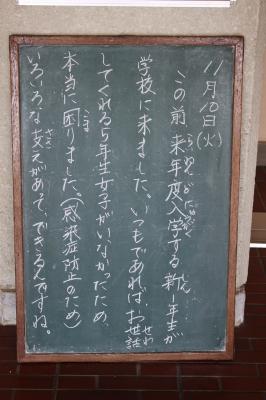 11月10日(火)
この前、来年度入学する新1年生が
学校に来ました。いつもであれば、お世話
してくれる5年生女子がいなかったため、
本当に困りました。(感染症防止のため)
いろいろな支えがあって、できるんですね。